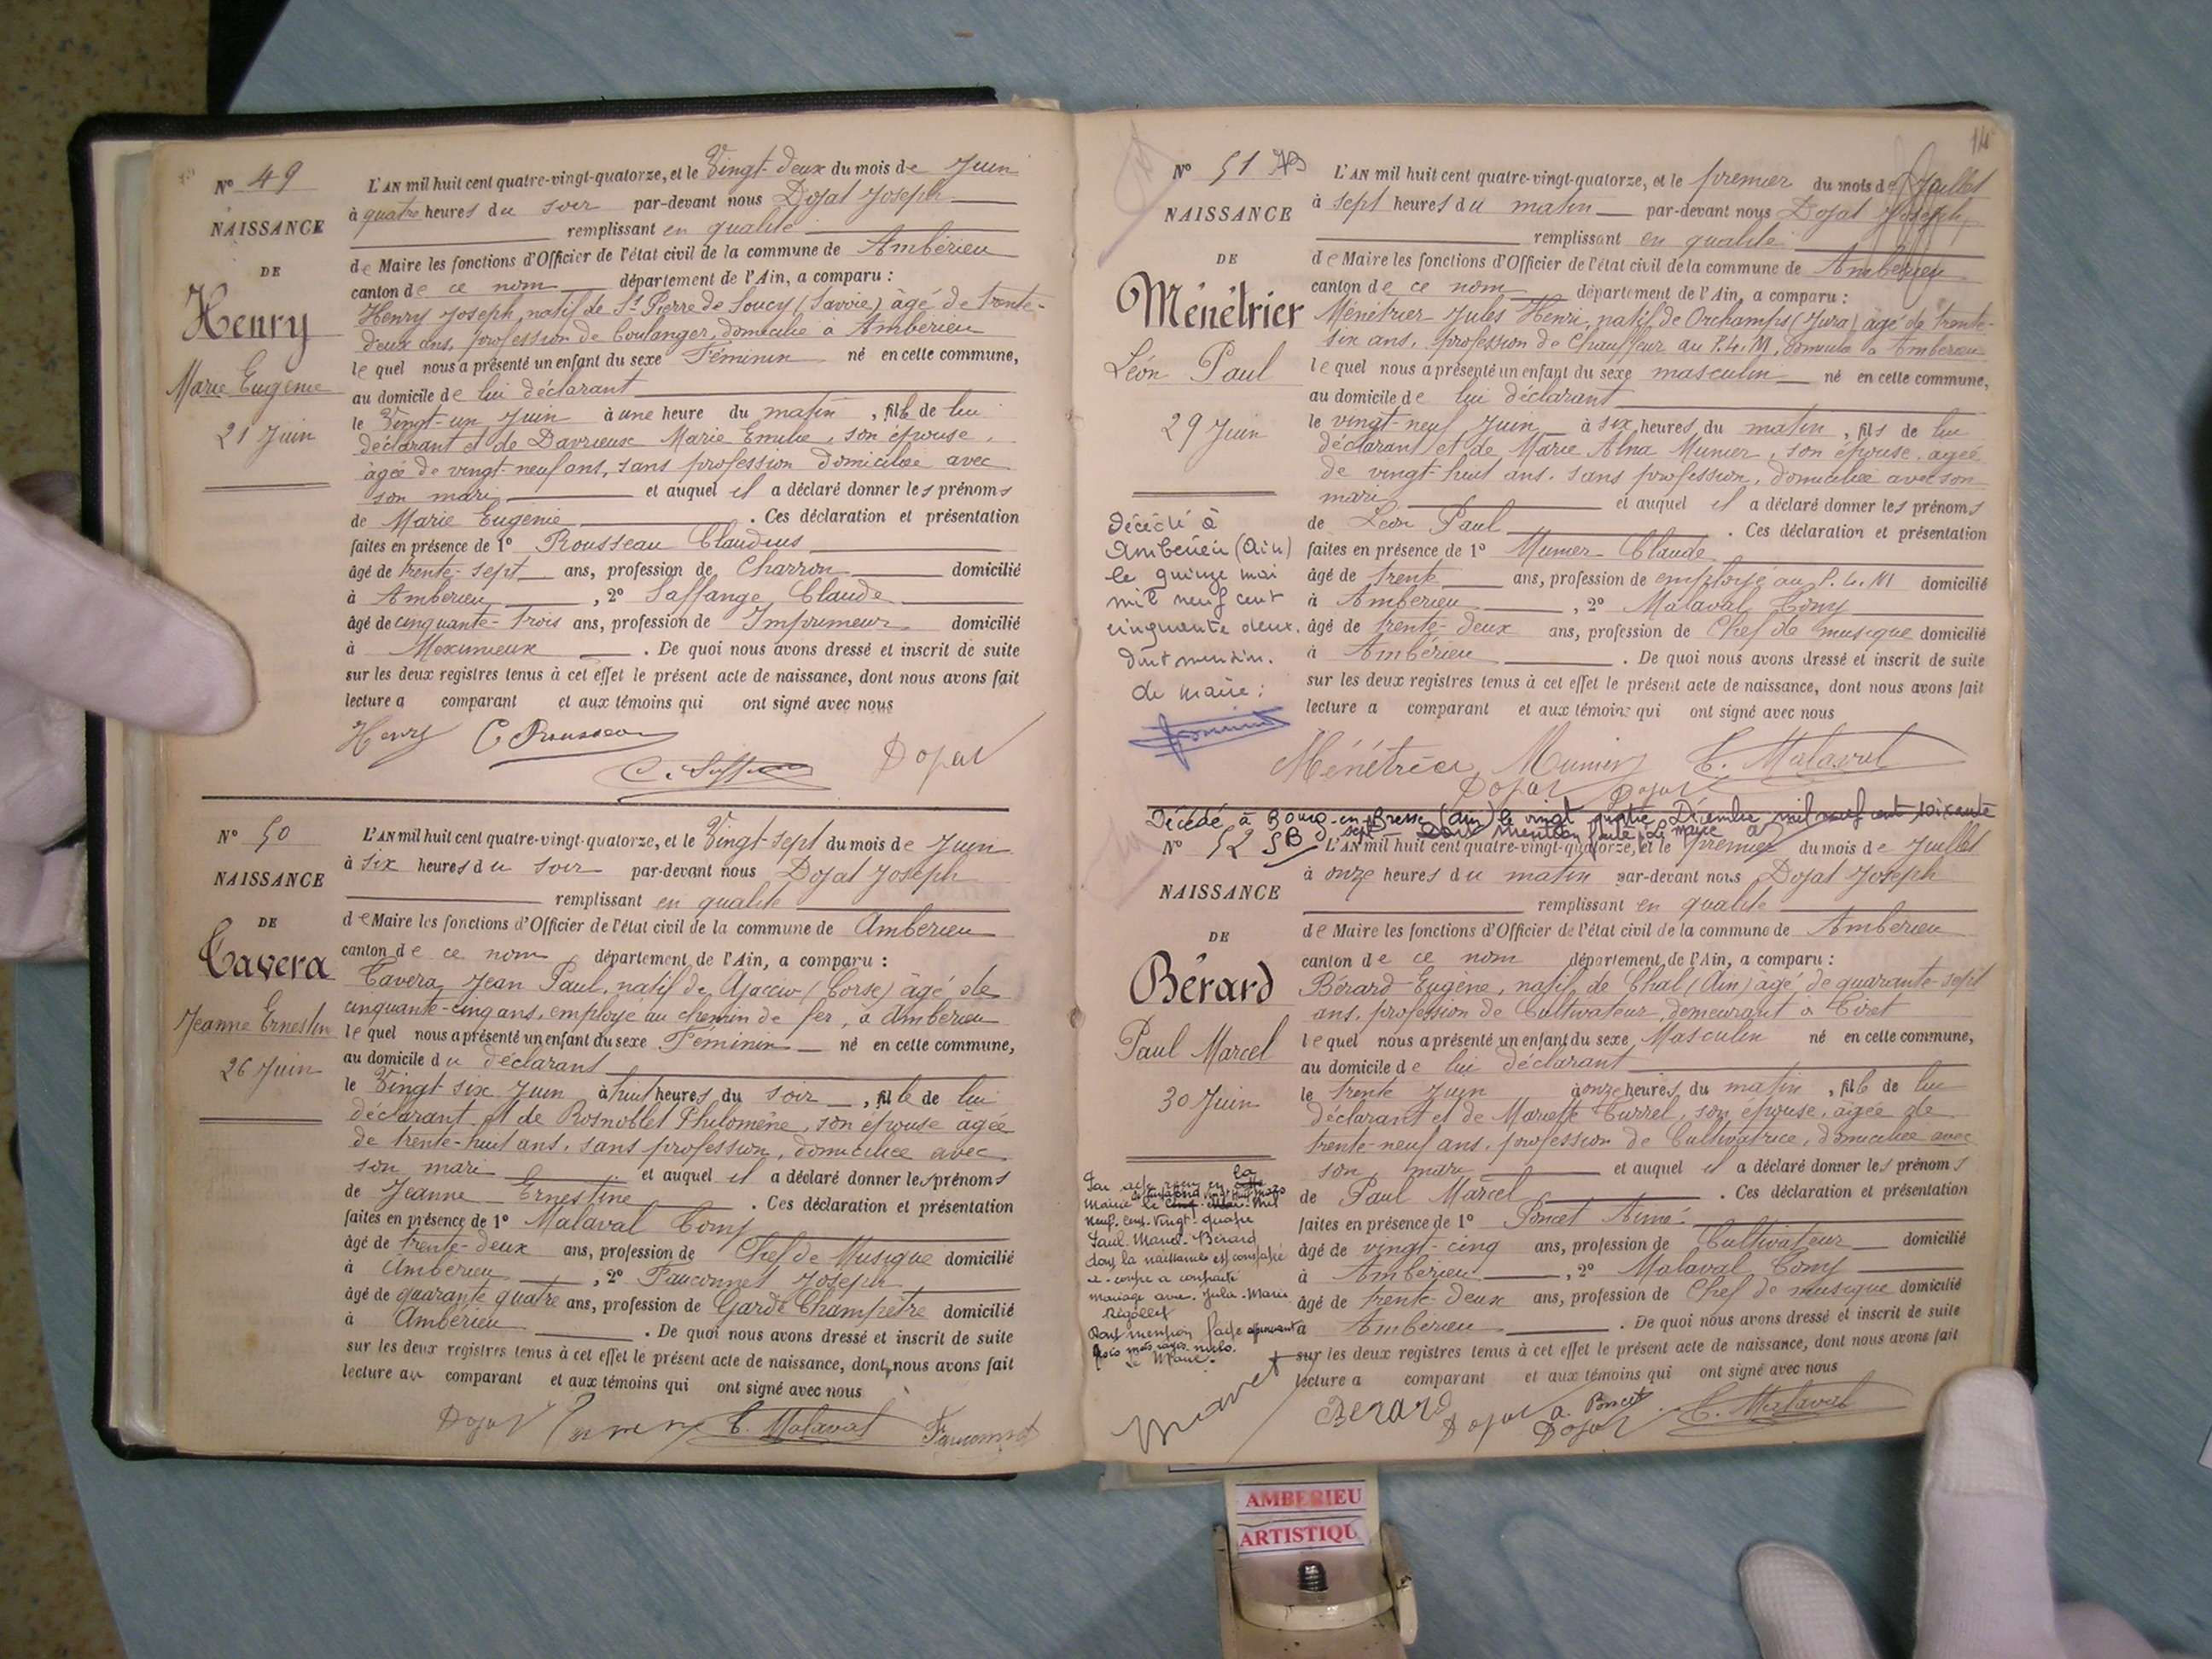 Nº 49
NAISSANCE
DE
Henry
Marie Eugenie
21 Juin
L'AN mil huit cent quatre-vingt-quatorze, et le Vingt-deux du mois de Juin
à quatre heures du soir par-devant nous Dojat Joseph
remplissant en qualité
de Maire les fonctions d'Officier de l'état civil de la commune de Ambérieu
canton de ce nom département de l'Ain, a comparu :
Henry Joseph, natif de St Pierre de Soucy (Savoie) âgé de trente-
deux ans, profession de Boulanger, domicilié à Ambérieu
lequel nous a présenté un enfant du sexe Féminin né en cette commune,
au domicile de lui déclarant
le Vingt-un Juin à une heure du matin, fille de lui
déclarant et de Davrieux Marie Emilie, son épouse,
âgée de vingt-neuf ans, sans profession domiciliée avec
son mari et auquel il a déclaré donner les prénoms
de Marie Eugenie. Ces déclaration et présentation
faites en présence de 1º Rousseau Claudius
âgé de trente-sept ans, profession de Charron domicilié
à Ambérieu, 2º Saffange Claude
âgé de cinquante-trois ans, profession de Imprimeur domicilié
à Meximieux. De quoi nous avons dressé et inscrit de suite
sur les deux registres tenus à cet effet le présent acte de naissance, dont nous avons fait
lecture a comparant et aux témoins qui ont signé avec nous
Henry C Rousseau
Dojat
Nº 50
NAISSANCE
DE
Tavera
Jeanne Ernestine
26 Juin
L'AN mil huit cent quatre-vingt-quatorze, et le Vingt-sept du mois de Juin
à six heures du soir par-devant nous Dojat Joseph
remplissant en qualité
de Maire les fonctions d'Officier de l'état civil de la commune de Ambérieu
canton de ce nom département de l'Ain, a comparu :
Tavera Jean Paul, natif de Ajaccio (Corse) âgé de
cinquante-cinq ans, employé au chemin de fer, à Ambérieu
lequel nous a présenté un enfant du sexe Féminin né en cette commune,
au domicile du déclarant
le Vingt six Juin à huit heures du soir, fille de lui
déclarant et de Rosnoblet Philomène, son épouse âgée
de trente-huit ans, sans profession, domiciliée avec
son mari et auquel il a déclaré donner les prénoms
de Jeanne Ernestine. Ces déclaration et présentation
faites en présence de 1º Malaval Tony
âgé de trente-deux ans, profession de Chef de Musique domicilié
à Ambérieu, 2º Fauconnet Joseph
âgé de quarante quatre ans, profession de Garde Champêtre domicilié
à Ambérieu. De quoi nous avons dressé et inscrit de suite
sur les deux registres tenus à cet effet le présent acte de naissance, dont nous avons fait
lecture au comparant et aux témoins qui ont signé avec nous
Dojat T. Malaval Fauconnet
14
Nº 51
NAISSANCE
DE
Ménétrier
Léon Paul
29 Juin
Décédé à
Ambérieu (Ain)
le quinze mai
mil neuf cent
cinquante deux.
Dont mention.
Le Maire :
L'AN mil huit cent quatre-vingt-quatorze, et le premier du mois de Juillet
à sept heures du matin par-devant nous Dojat Joseph
remplissant en qualité
de Maire les fonctions d'Officier de l'état civil de la commune de Ambérieu
canton de ce nom département de l'Ain, a comparu :
Ménétrier Jules Henri, natif de Orchamps (Jura) âgé de trente-
six ans, profession de Chauffeur au P.L.M, domicilié à Ambérieu
lequel nous a présenté un enfant du sexe masculin né en cette commune,
au domicile de lui déclarant
le vingt-neuf Juin à six heures du matin, fils de lui
déclarant et de Marie Alna Munier, son épouse, âgée
de vingt-huit ans, sans profession, domiciliée avec son
mari et auquel il a déclaré donner les prénoms
de Léon Paul. Ces déclaration et présentation
faites en présence de 1º Munier Claude
âgé de trente ans, profession de employé au P.L.M domicilié
à Ambérieu, 2º Malaval Tony
âgé de trente-deux ans, profession de Chef de musique domicilié
à Ambérieu. De quoi nous avons dressé et inscrit de suite
sur les deux registres tenus à cet effet le présent acte de naissance, dont nous avons fait
lecture a comparant et aux témoins qui ont signé avec nous
Ménétrier Munier T. Malaval
Dojat Dojat
Décédé à Bourg-en-Bresse (Ain) le vingt quatre Décembre mil neuf cent soixante
sept mention faite Le maire
Nº 52
NAISSANCE
DE
Bérard
Paul Marcel
30 Juin
Par acte reçu en la
Mairie le
neuf-cent-vingt-quatre
Paul-Marcel-Bérard
dont la naissance est constatée
ci-contre a contracté
mariage avec Julia-Marie
Rigollet
Dont mention faite
Le Maire.
L'AN mil huit cent quatre-vingt-quatorze, et le premier du mois de Juillet
à onze heures du matin par-devant nous Dojat Joseph
remplissant en qualité
de Maire les fonctions d'Officier de l'état civil de la commune de Ambérieu
canton de ce nom département de l'Ain, a comparu :
Bérard Eugène, natif de Chal (Ain) âgé de quarante-sept
ans, profession de Cultivateur, demeurant à Tiret
lequel nous a présenté un enfant du sexe Masculin né en cette commune,
au domicile de lui déclarant
le trente Juin à onze heures du matin, fils de lui
déclarant et de Mariette Turrel, son épouse, âgée de
trente-neuf ans, profession de Cultivatrice, domiciliée avec
son mari et auquel il a déclaré donner les prénoms
de Paul Marcel. Ces déclaration et présentation
faites en présence de 1º Poncet Aimé
âgé de vingt-cinq ans, profession de Cultivateur domicilié
à Ambérieu, 2º Malaval Tony
âgé de trente-deux ans, profession de Chef de musique domicilié
à Ambérieu. De quoi nous avons dressé et inscrit de suite
sur les deux registres tenus à cet effet le présent acte de naissance, dont nous avons fait
lecture a comparant et aux témoins qui ont signé avec nous
BERARD Dojat a. Poncet T. Malaval
Dojat
AMBERIEU
ARTISTIQU